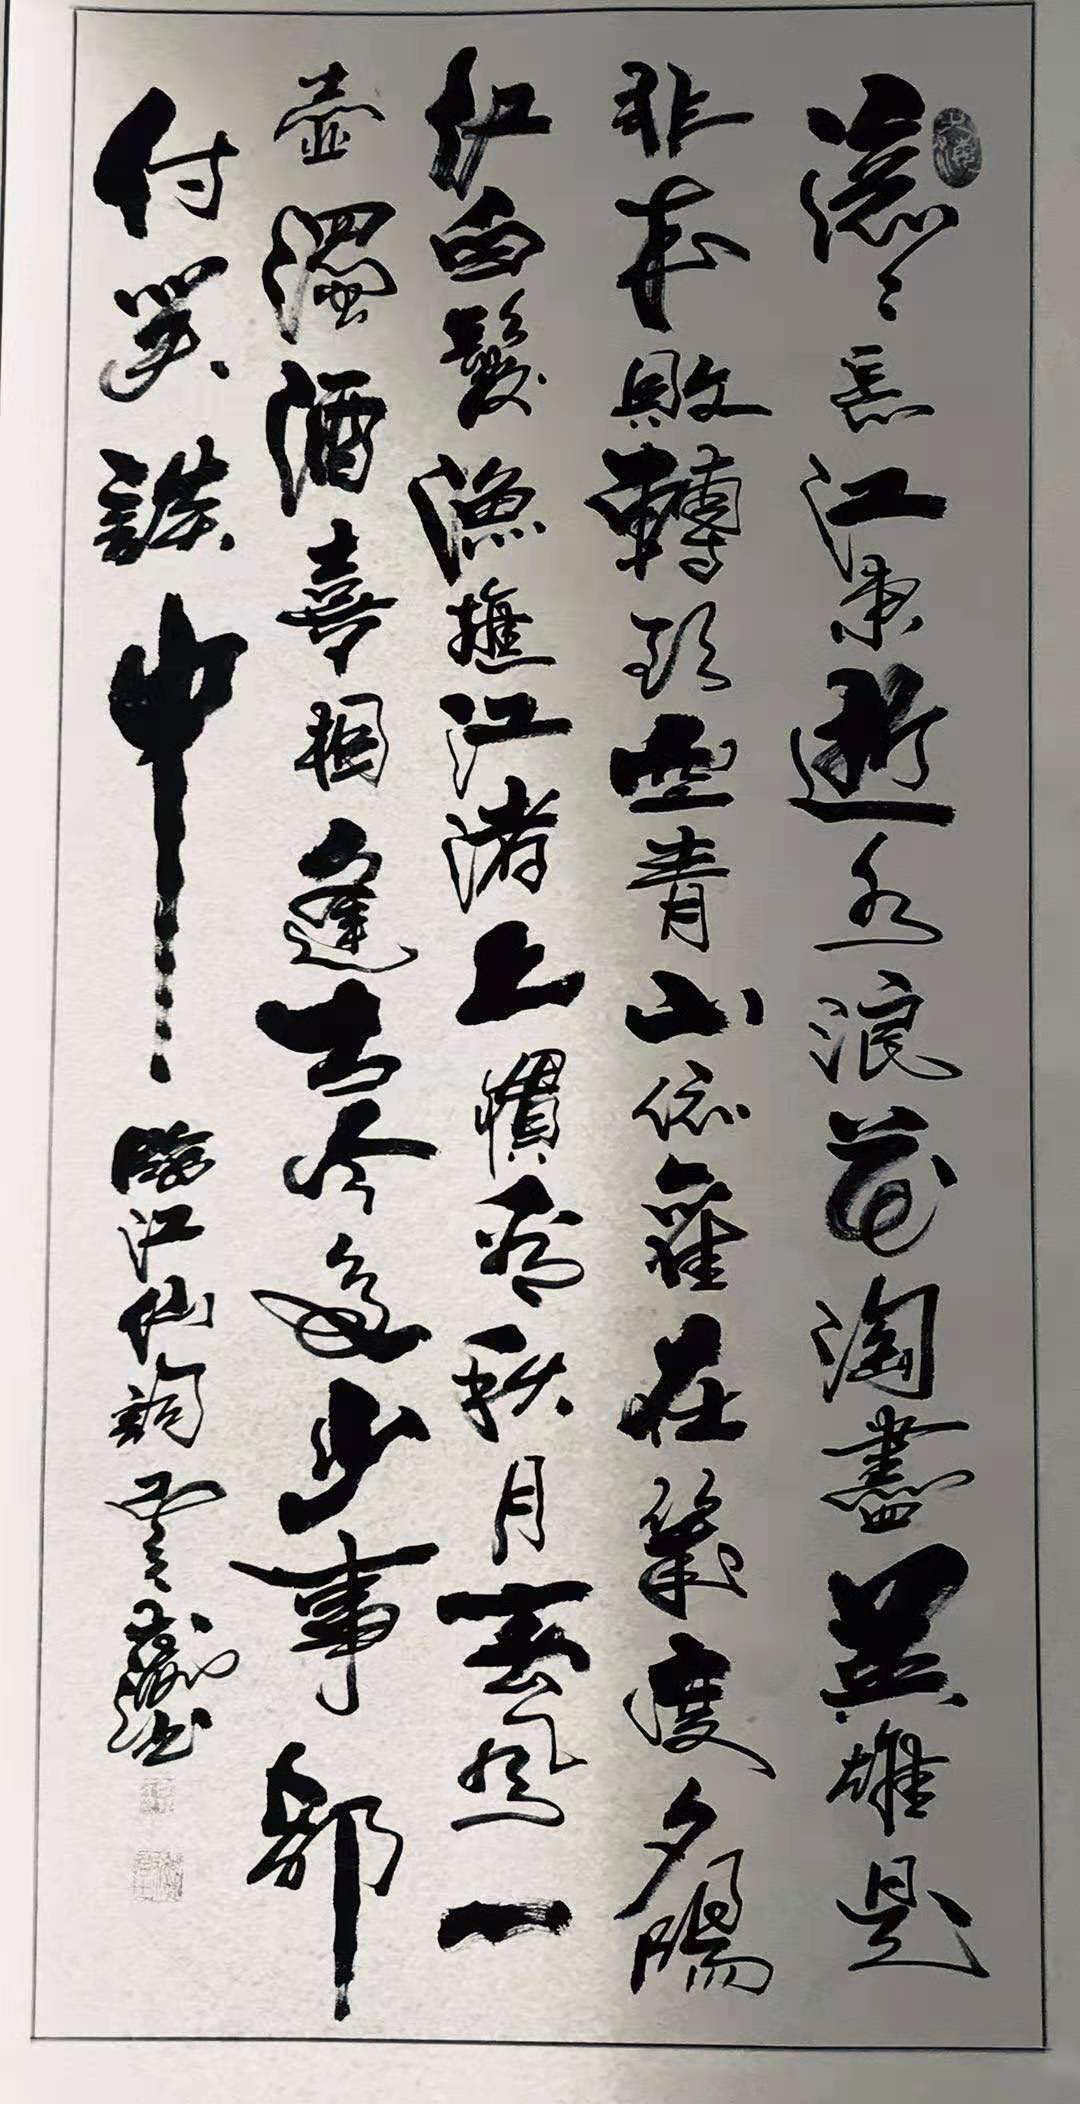 滚々长江东逝水浪花淘盡英雄是
非成敗轉头空青山依舊在幾度夕陽
红白髮漁樵江渚上慣看秋月春風一
壶濁酒喜相逢古今多少事都
付笑談中
臨江仙詞